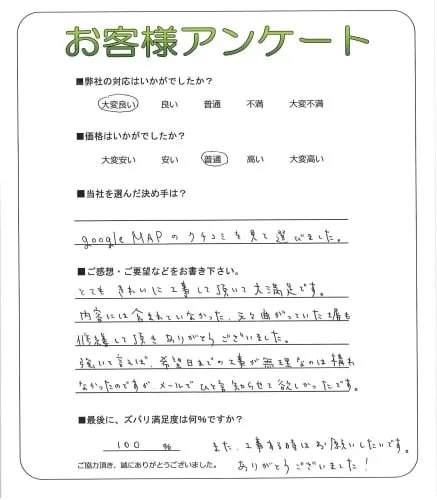 お客様アンケート
■弊社の対応はいかがでしたか？
大変良い 良い 普通 不満 大変不満
■価格はいかがでしたか？
大変安い 安い 普通 高い 大変高い
■当社を選んだ決め手は？
google MAPのクチコミを見て選びました。
■ご感想・ご要望などをお書き下さい。
とてもきれいに工事して頂いて大満足です。
内容には含まれていなかった、元々曲がっていた場所も
修繕して頂きありがとうございました。
強いて言えば、希望日までの工事が無理なのは構わ
なかったのですが、メールでひと言知らせて欲しかったです。
■最後に、ズバリ満足度は何%ですか？
100 % また、工事する時はお願いしたいです。
ご協力頂き、誠にありがとうございました。 ありがとうございました！